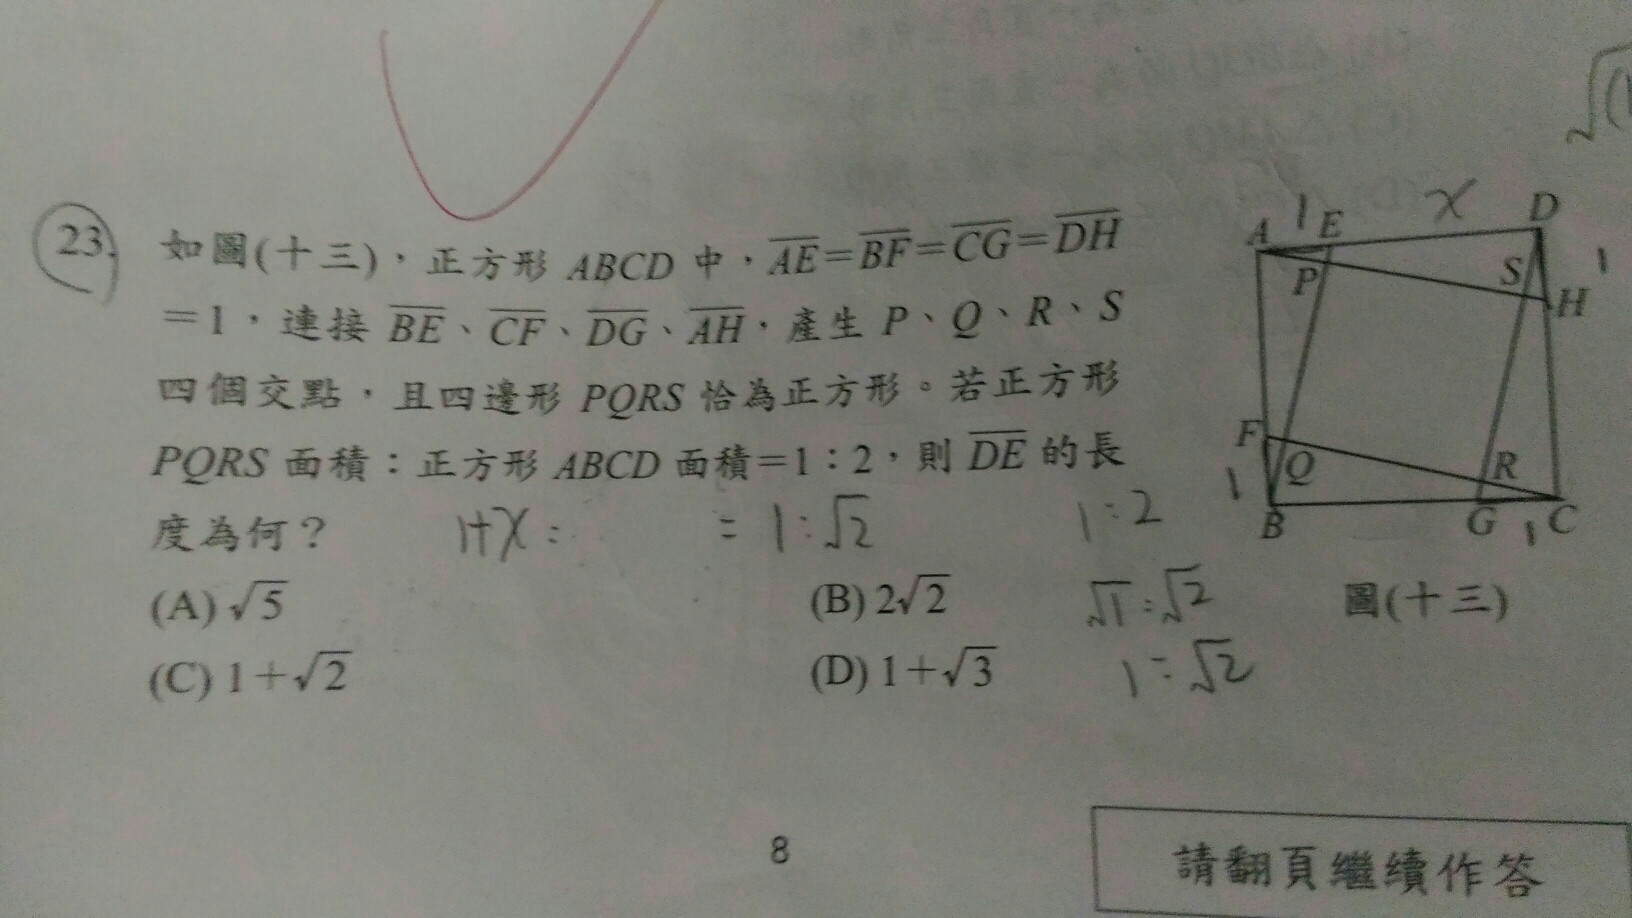 23. 如圖(十三)，正方形 ABCD 中，AE＝BF＝CG＝DH
＝1，連接 BE、CF、DG、AH，產生 P、Q、R、S
四個交點，且四邊形 PQRS 恰為正方形。若正方形
PQRS 面積：正方形 ABCD 面積＝1：2，則 DE 的長
度為何？
1+x : = 1:√2
1:2
(A) √5
(B) 2√2
√1:√2
(C) 1＋√2
(D) 1＋√3
1:√2
A 1 E x D
P S 1
H
F
1 Q R
B G 1 C
圖(十三)
8
請翻頁繼續作答